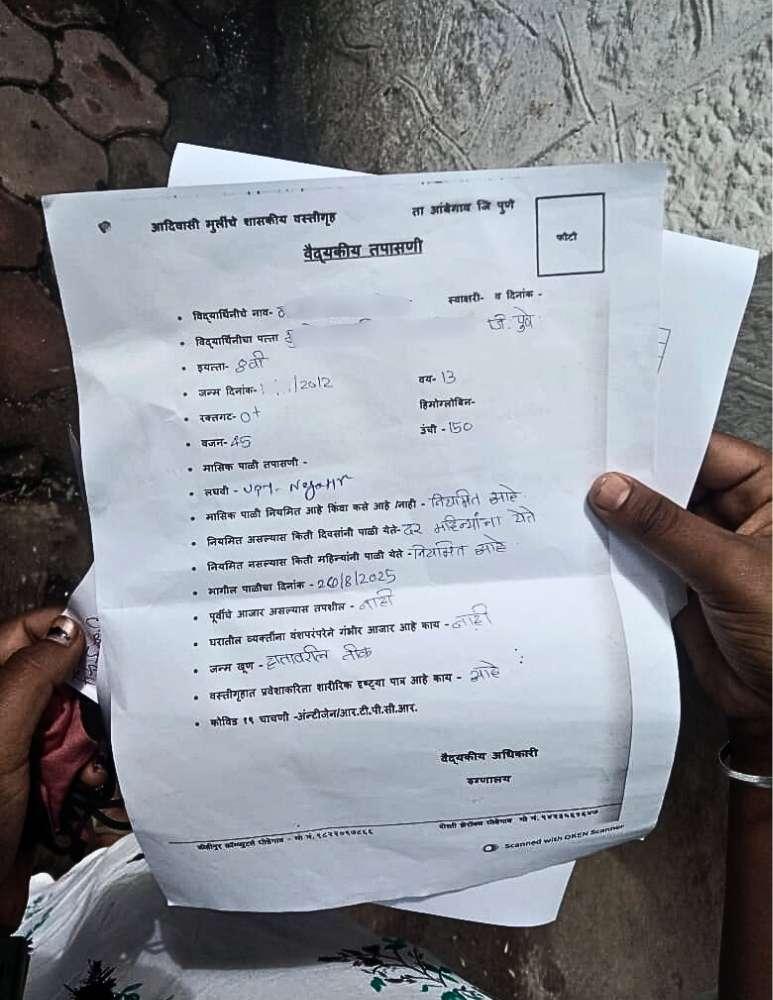 आदिवासी मुलींचे शासकीय वस्तीगृह ता आंबेगाव जि पुणे
वैद्यकीय तपासणी
फोटो
स्वाक्षरी- व दिनांक -
• विद्यार्थिनीचे नाव-
• विद्यार्थिनीचा पत्ता जि. पुणे
• इयत्ता- 8वी
• जन्म दिनांक- /2012 वय- 13
• रक्तगट- O+ हिमोग्लोबिन-
• वजन- 45 उंची - 150
• मासिक पाळी तपासणी -
• लघवी - UPT -
• मासिक पाळी नियमित आहे किंवा कसे आहे /नाही - नियमित आहे.
• नियमित असल्यास किती दिवसांनी पाळी येते- दर महिन्यांना येते
• नियमित नसल्यास किती महिन्यांनी पाळी येते - नियमित आहे.
• मागील पाळीचा दिनांक - /8/2025
• पूर्वीचे आजार असल्यास तपशील - नाही
• घरातील व्यक्तींना वंशपरंपरेने गंभीर आजार आहे काय - नाही
• जन्म खूण - हातावरील तीळ
• वस्तीगृहात प्रवेशाकरिता शारीरिक दृष्ट्या पात्र आहे काय - आहे
• कोविड १९ चाचणी -अ‍ॅन्टीजेन/आर.टी.पी.सी.आर.
वैद्यकीय अधिकारी
रुग्णालय
Scanned with OKEN Scanner